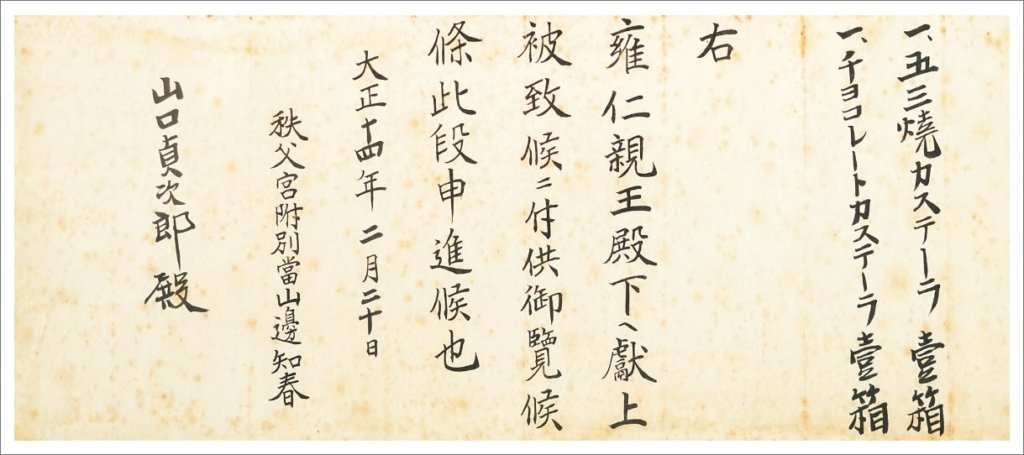 一、五三焼カステーラ 壹箱
一、チョコレートカステーラ 壹箱
右
雍仁親王殿下へ獻上
被致候ニ付供御覽候
條此段申進候也
大正十四年二月二十日
秩父宮附別當山邊知春
山口貞次郎殿